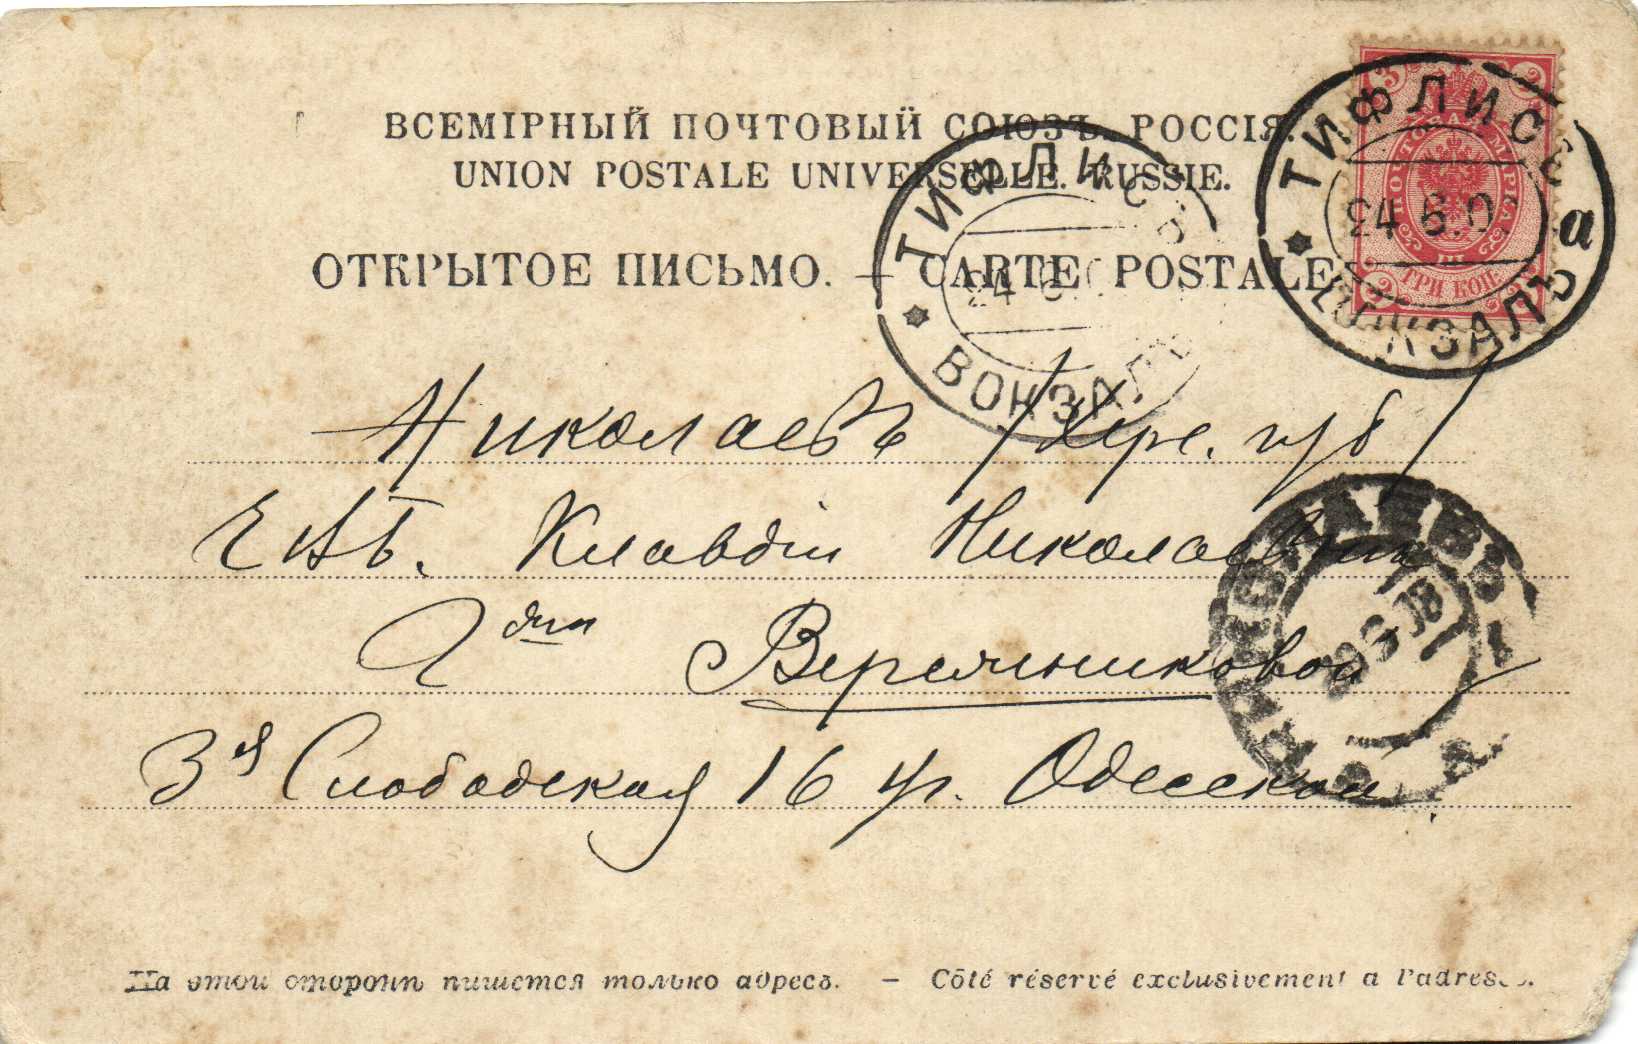 ВСЕМІРНЫЙ ПОЧТОВЫЙ СОЮЗЪ. РОССІЯ.
UNION POSTALE UNIVERSELLE. RUSSIE.
ОТКРЫТОЕ ПИСЬМО. — CARTE POSTALE
ПОЧТОВАЯ МАРКА
ТРИ КОП.
ТИФЛИСЪ
24 6 0
ВОКЗАЛЪ
ТИФЛИСЪ
24.6.0
а
ВОКЗАЛЪ
Николаевъ /Хер. губ/
ЕВБ. Клавдіи Николаевны
Г-жи
3я Слободская 16 уг. Одесской
НИКОЛАЕВЪ
На этой сторонѣ пишется только адресъ. — Côté réservé exclusivement a l'adresse.